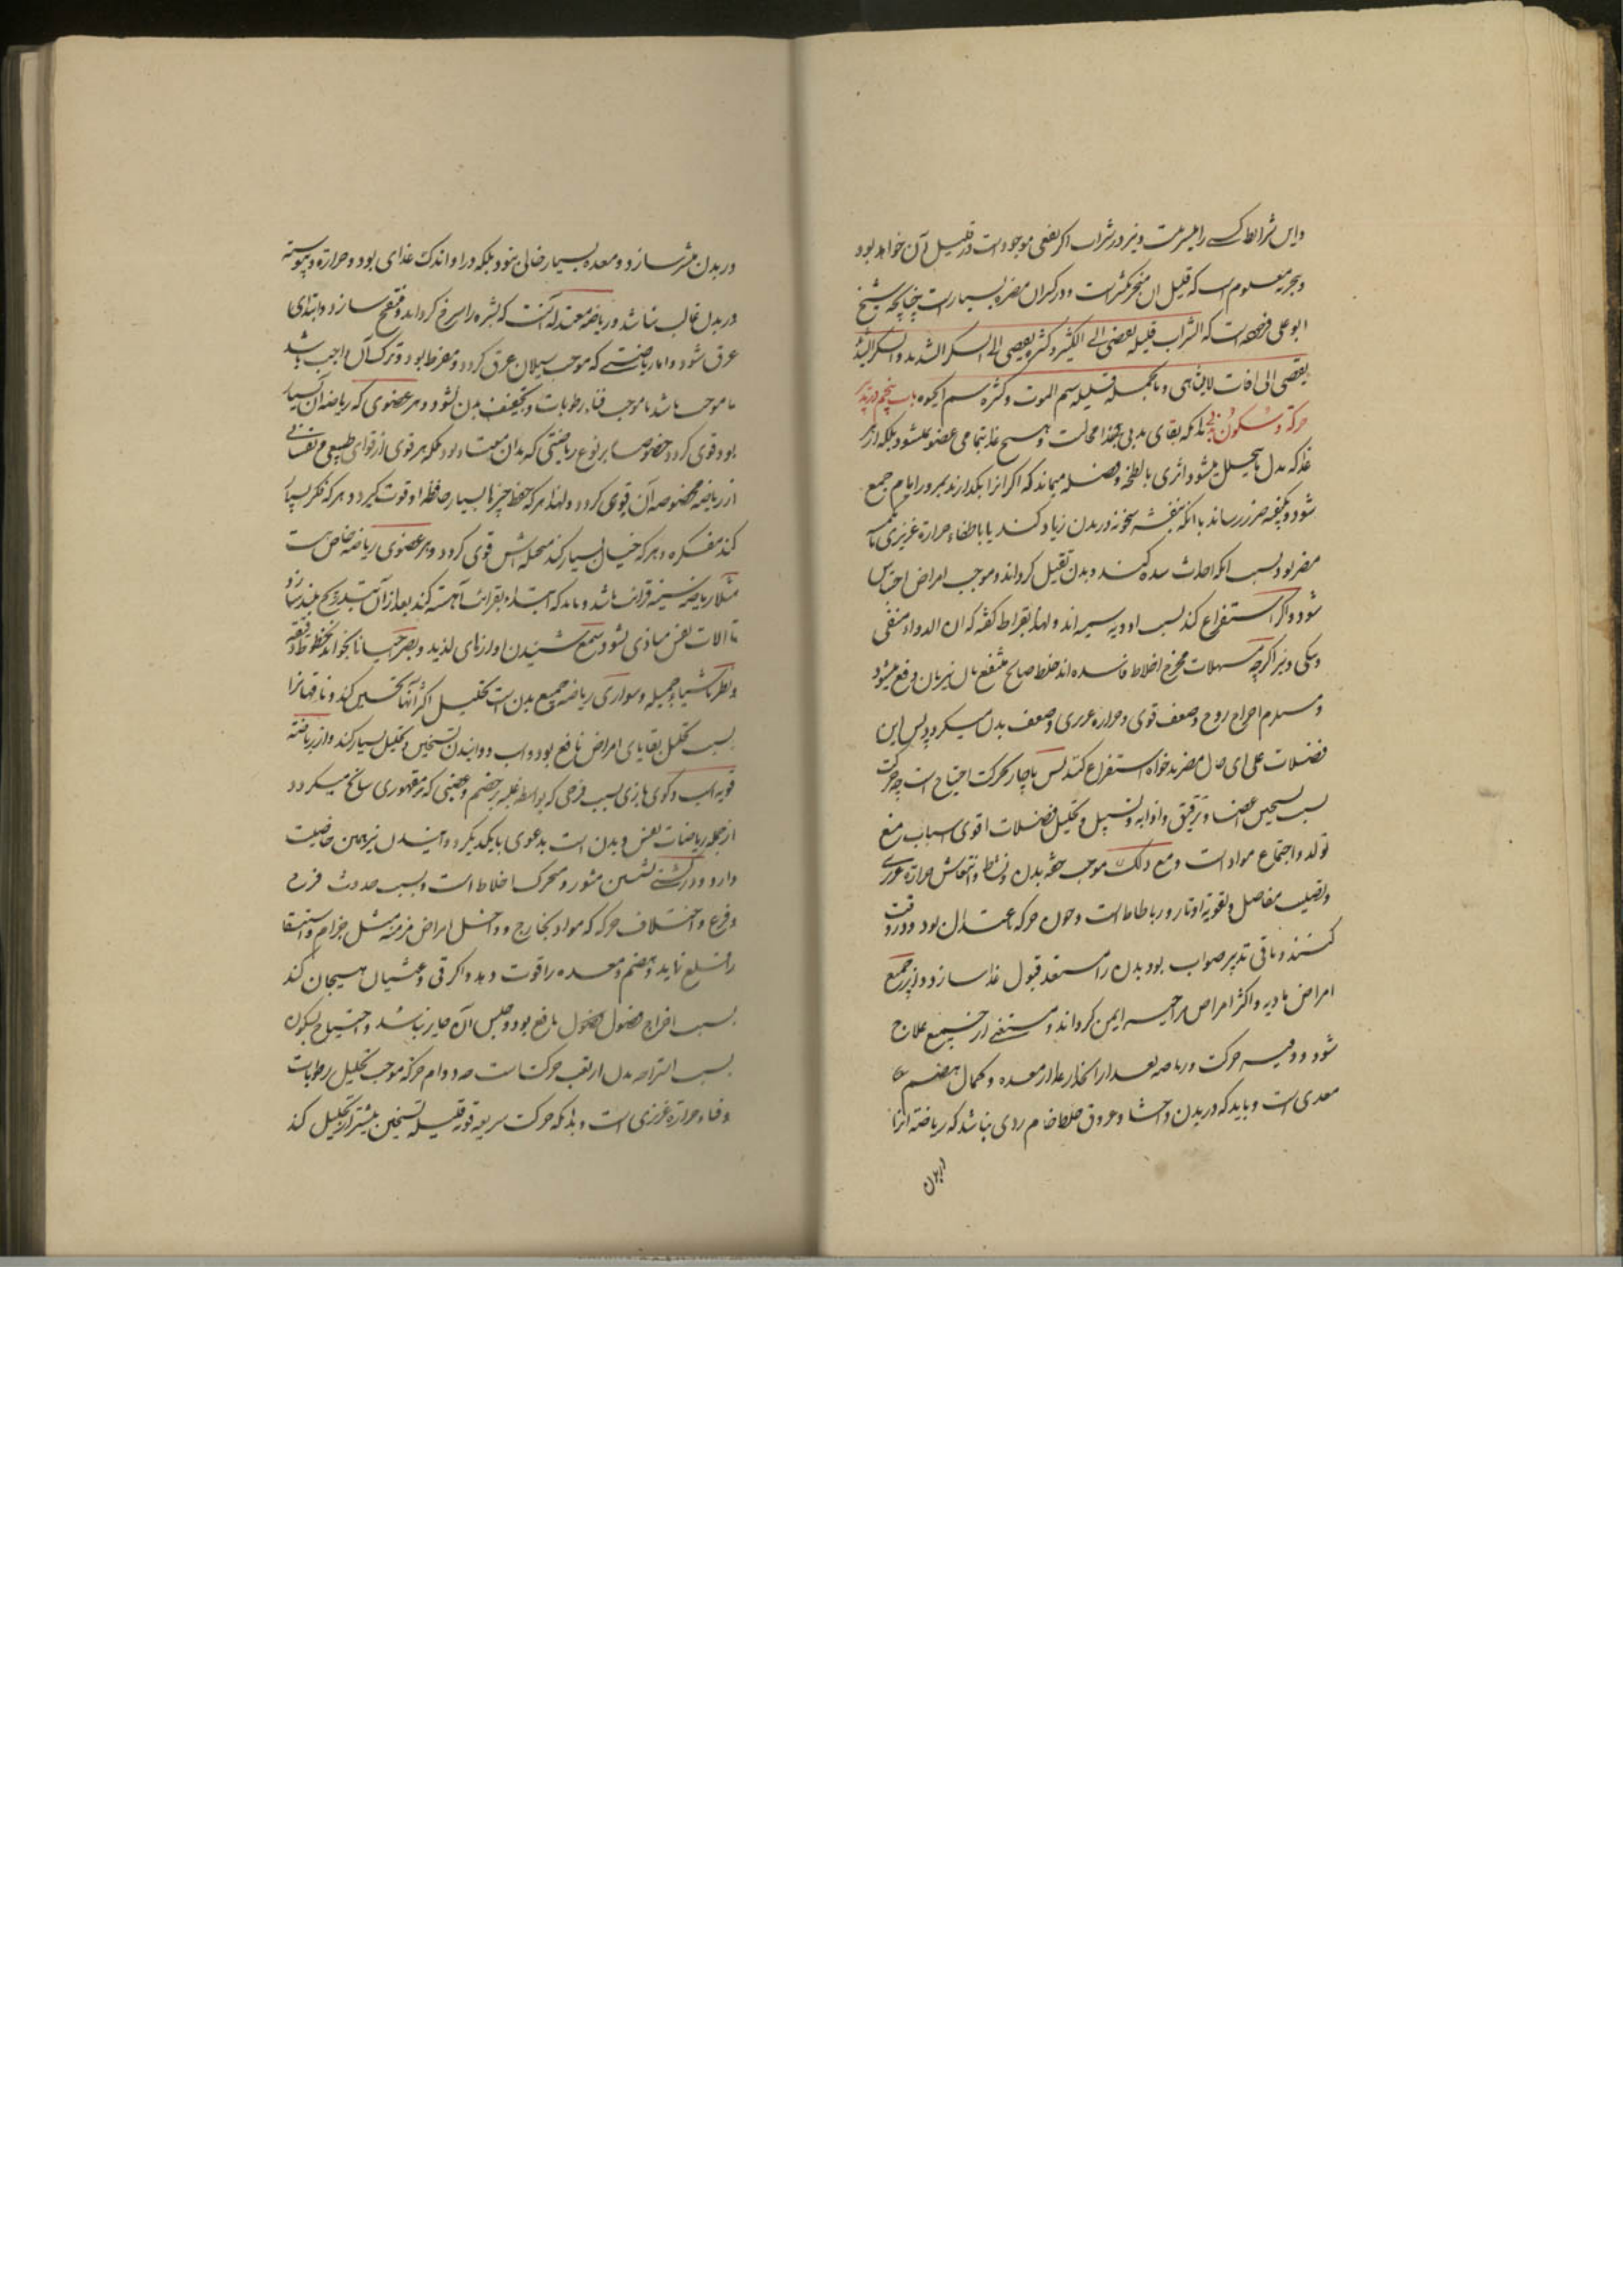 واین شرایط کسی را میسر نیست و نیز در شراب اگر نفعی موجود است در قلیل آن خواهد بود
و بتجربه معلوم است که قلیل ان منجر بکثیر است و در کثیر ان مضره بسیار است چنانچه شیخ
ابو علی فرموده است که الشراب قلیله یفضی الی الکثیر و کثیره یفضی الی السکر الشدید و السکر الشدید
یفضی الی افات لایتناهی و بالجمله قلیله سم الموت و کثیره سم الحیوه باب پنجم در تدبیر
حرکة و سکون بدنی بدانکه بقای بدن بی غذا محالست و هیچ غذا بتمامی عضو نمیشود بلکه از هر
غذا که بدل ما یتحلل میشود اثری و لطخه و فضله میماند که اگر انرا بگذارند بمرور ایام جمع
شود و بکیفیه ضرر رساند با انکه بنفسه سخونه در بدن زیاد کند یا باطفاء حراره غریزی
مضر بود بسبب انکه احداث سده کند و بدن ثقیل گرداند و موجب امراض احتباس
شود و اگر استفراغ کند بسبب ادویه سمیه اند و لهذا بقراط گفته که ان الدواء منقی
و منکی و نیز اگرچه مسهلات مخرج اخلاط فاسده اند خلط صالح منتفع به ان نیز بان دفع میشود
و مستلزم اخراج روح و ضعف قوی و حراره غریزی و ضعف بدن میگردد پس این
فضلات علی ای حال مضرند خواه استفراغ کنند پس ناچار بحرکت احتیاج است چه حرکت
بسبب تسخین اعضا و ترقیق و اذابه و تسییل و تحلیل فضلات اقوی اسباب منع
تولد و اجتماع مواد است و مع ذلک موجب خفه بدن و نشاط و انتعاش حراره غریزی
و تصلیب مفاصل و تقویه اوتار و رباطات است و چون حرکه باعتدال بود و در وقت
کنند و باقی تدبیر صواب بود بدن را مستعد قبول غذا سازد و از جمیع
امراض مادیه و اکثر امراض مزاجیه ایمن گرداند و مستغنی از جمیع علاج
شود و وقت حرکت و ریاضه بعد از انحدار غذا از معده و کمال هضم
معدی است و باید که در بدن و احشا و عروق خلط خام ردی نباشد که ریاضة انرا
در بدن
در بدن منتشر سازد و معده بسیار خالی نبود بلکه در او اندک غذای بود و حرارة و یبوسة
در بدن غالب نباشد و ریاضه معتدله آنست که بشره را سرخ گرداند و منتفخ سازد و ابتدای
عرق شود و اما ریاضتی که موجب سیلان عرق گردد مفرط بود و ترک آن واجب باشد
تا موجب فناء رطوبات و تجفیف بدن نشود و هر عضوی که ریاضه آن بسیار
بود قوی گردد خصوصا بر نوع ریاضتی که بدان معتاد بود بلکه هر قوی از قوای طبیعی و نفسانی
از ریاضه مخصوصه آن قوی گردد و لهذا هر که حفظ چیزها بسیار کند حافظه او قوت گیرد و هر که فکر بسیار
کند مفکره و هر که خیال بسیار کند متخیله اش قوی گردد و هر عضوی ریاضه خاص هست
مثلا ریاضه سینه قرائت باشد و باید که ابتداء بقرائت آهسته کند بعد از آن بتدریج بلند سازد
تا الات نفس متاذی نشود و سمع شنیدن اوازهای لذیذ و بصر احیانا بخواندن خطوط دقیقه
و نظر باشیاء جمیله و سواری ریاضه جمیع بدن است تحلیل اکثر آنها تسخین کند و ناقهانرا
بسبب تحلیل بقایای امراض نافع بود و اسب دوانیدن تسخین و تحلیل بسیار کند و از ریاضة
قویه است و گوی بازی بسبب فرحی که بواسطه غلبه بر خصم و غضبی که بر مقهوری سانح میگردد
از جمله ریاضات نفس و بدن است بدعوی با یکدیگر دوانیدن نیز همین خاصیت
دارد و در کشتی نشستن مثور و محرک اخلاط است و بسبب حدوث فرح
و فزع و اختلاف حرکه که مواد بخارج و داخل امراض مزمنه مثل جزام و استسقا
را قلع نماید و هضم و معده را قوت دهد و اگر قی و غشیان هیجان کند
بسبب اخراج فضول فضول نافع بود و حبس آن جایز نباشد و احتیاج بسکون
بسبب استراحه بدن از تعب حرکت است چه دوام حرکه موجب تحلیل رطوبات
و فناء حرارة غریزی است و بدانکه حرکت سریعه قویه قلیله تسخین بیشتر از تحلیل کند